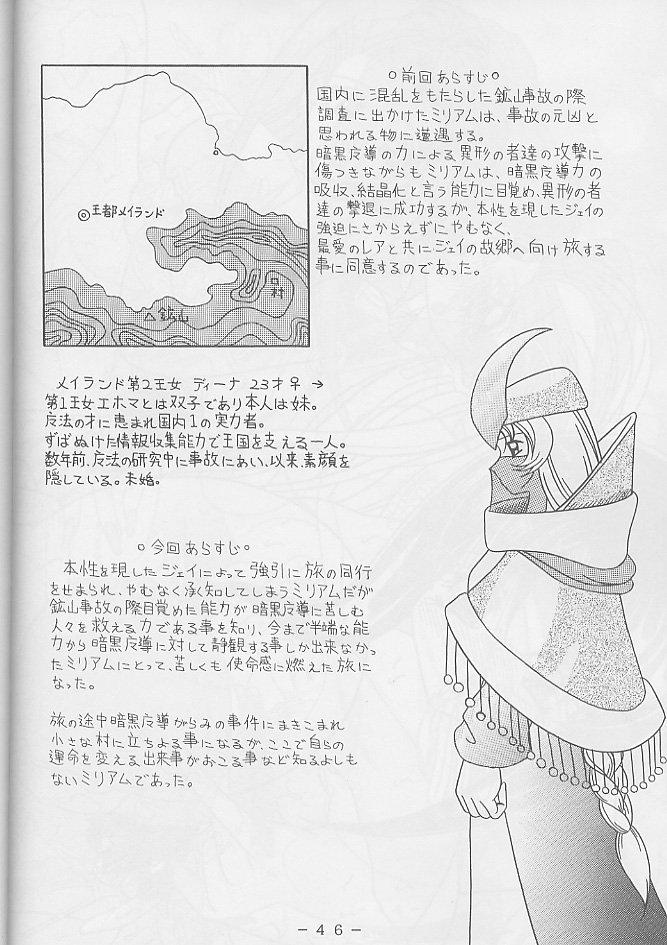 ○前回あらすじ○
国内に混乱をもたらした鉱山事故の際
調査に出かけたミリアムは、事故の元凶と
思われる物に遭遇する。
暗黒反導の力による異形の者達の攻撃に
傷つきながらもミリアムは、暗黒反導力の
吸収、結晶化と言う能力に目覚め、異形の者
達の撃退に成功するが、本性を現したジェイの
強迫にさからえずにやむなく、
最愛のレアと共にジェイの故郷へ向け旅する
事に同意するのであった。
◎王都メイランド
村
△鉱山
メイランド第2王女 ディーナ 23才♀→
第1王女エホマとは双子であり本人は妹。
反法の才に恵まれ国内1の実力者。
ずばぬけた情報収集能力で王国を支える一人。
数年前、反法の研究中に事故にあい、以来、素顔を
隠している。未婚。
○今回あらすじ○
本性を現したジェイによって強引に旅の同行
をせまられ、やむなく承知してしまうミリアムだが
鉱山事故の際目覚めた能力が暗黒反導に苦しむ
人々を救える力である事を知り、今まで半端な能
力から暗黒反導に対して静観する事しか出来なかっ
たミリアムにとって、苦しくも使命感に燃えた旅に
なった。
旅の途中暗黒反導がらみの事件にまきこまれ
小さな村に立ちよる事になるが、ここで自らの
運命を変える出来事がおこる事など知るよしも
ないミリアムであった。
－46－